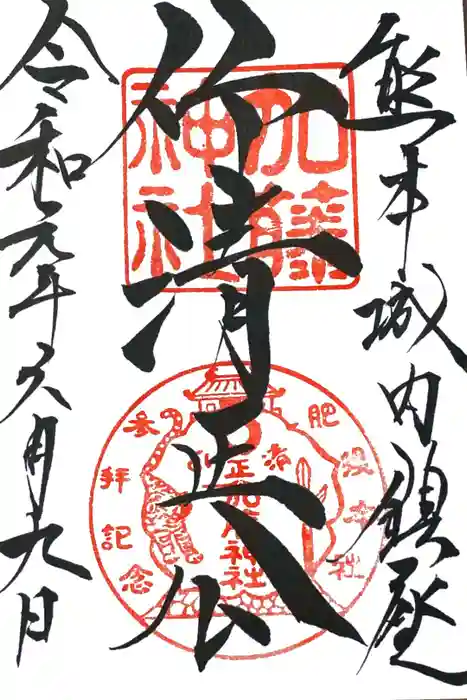 熊本城内鎮座
仰清正公
令和元年六月九日
加藤
神社
肥後本社
参拝記念
加藤神社